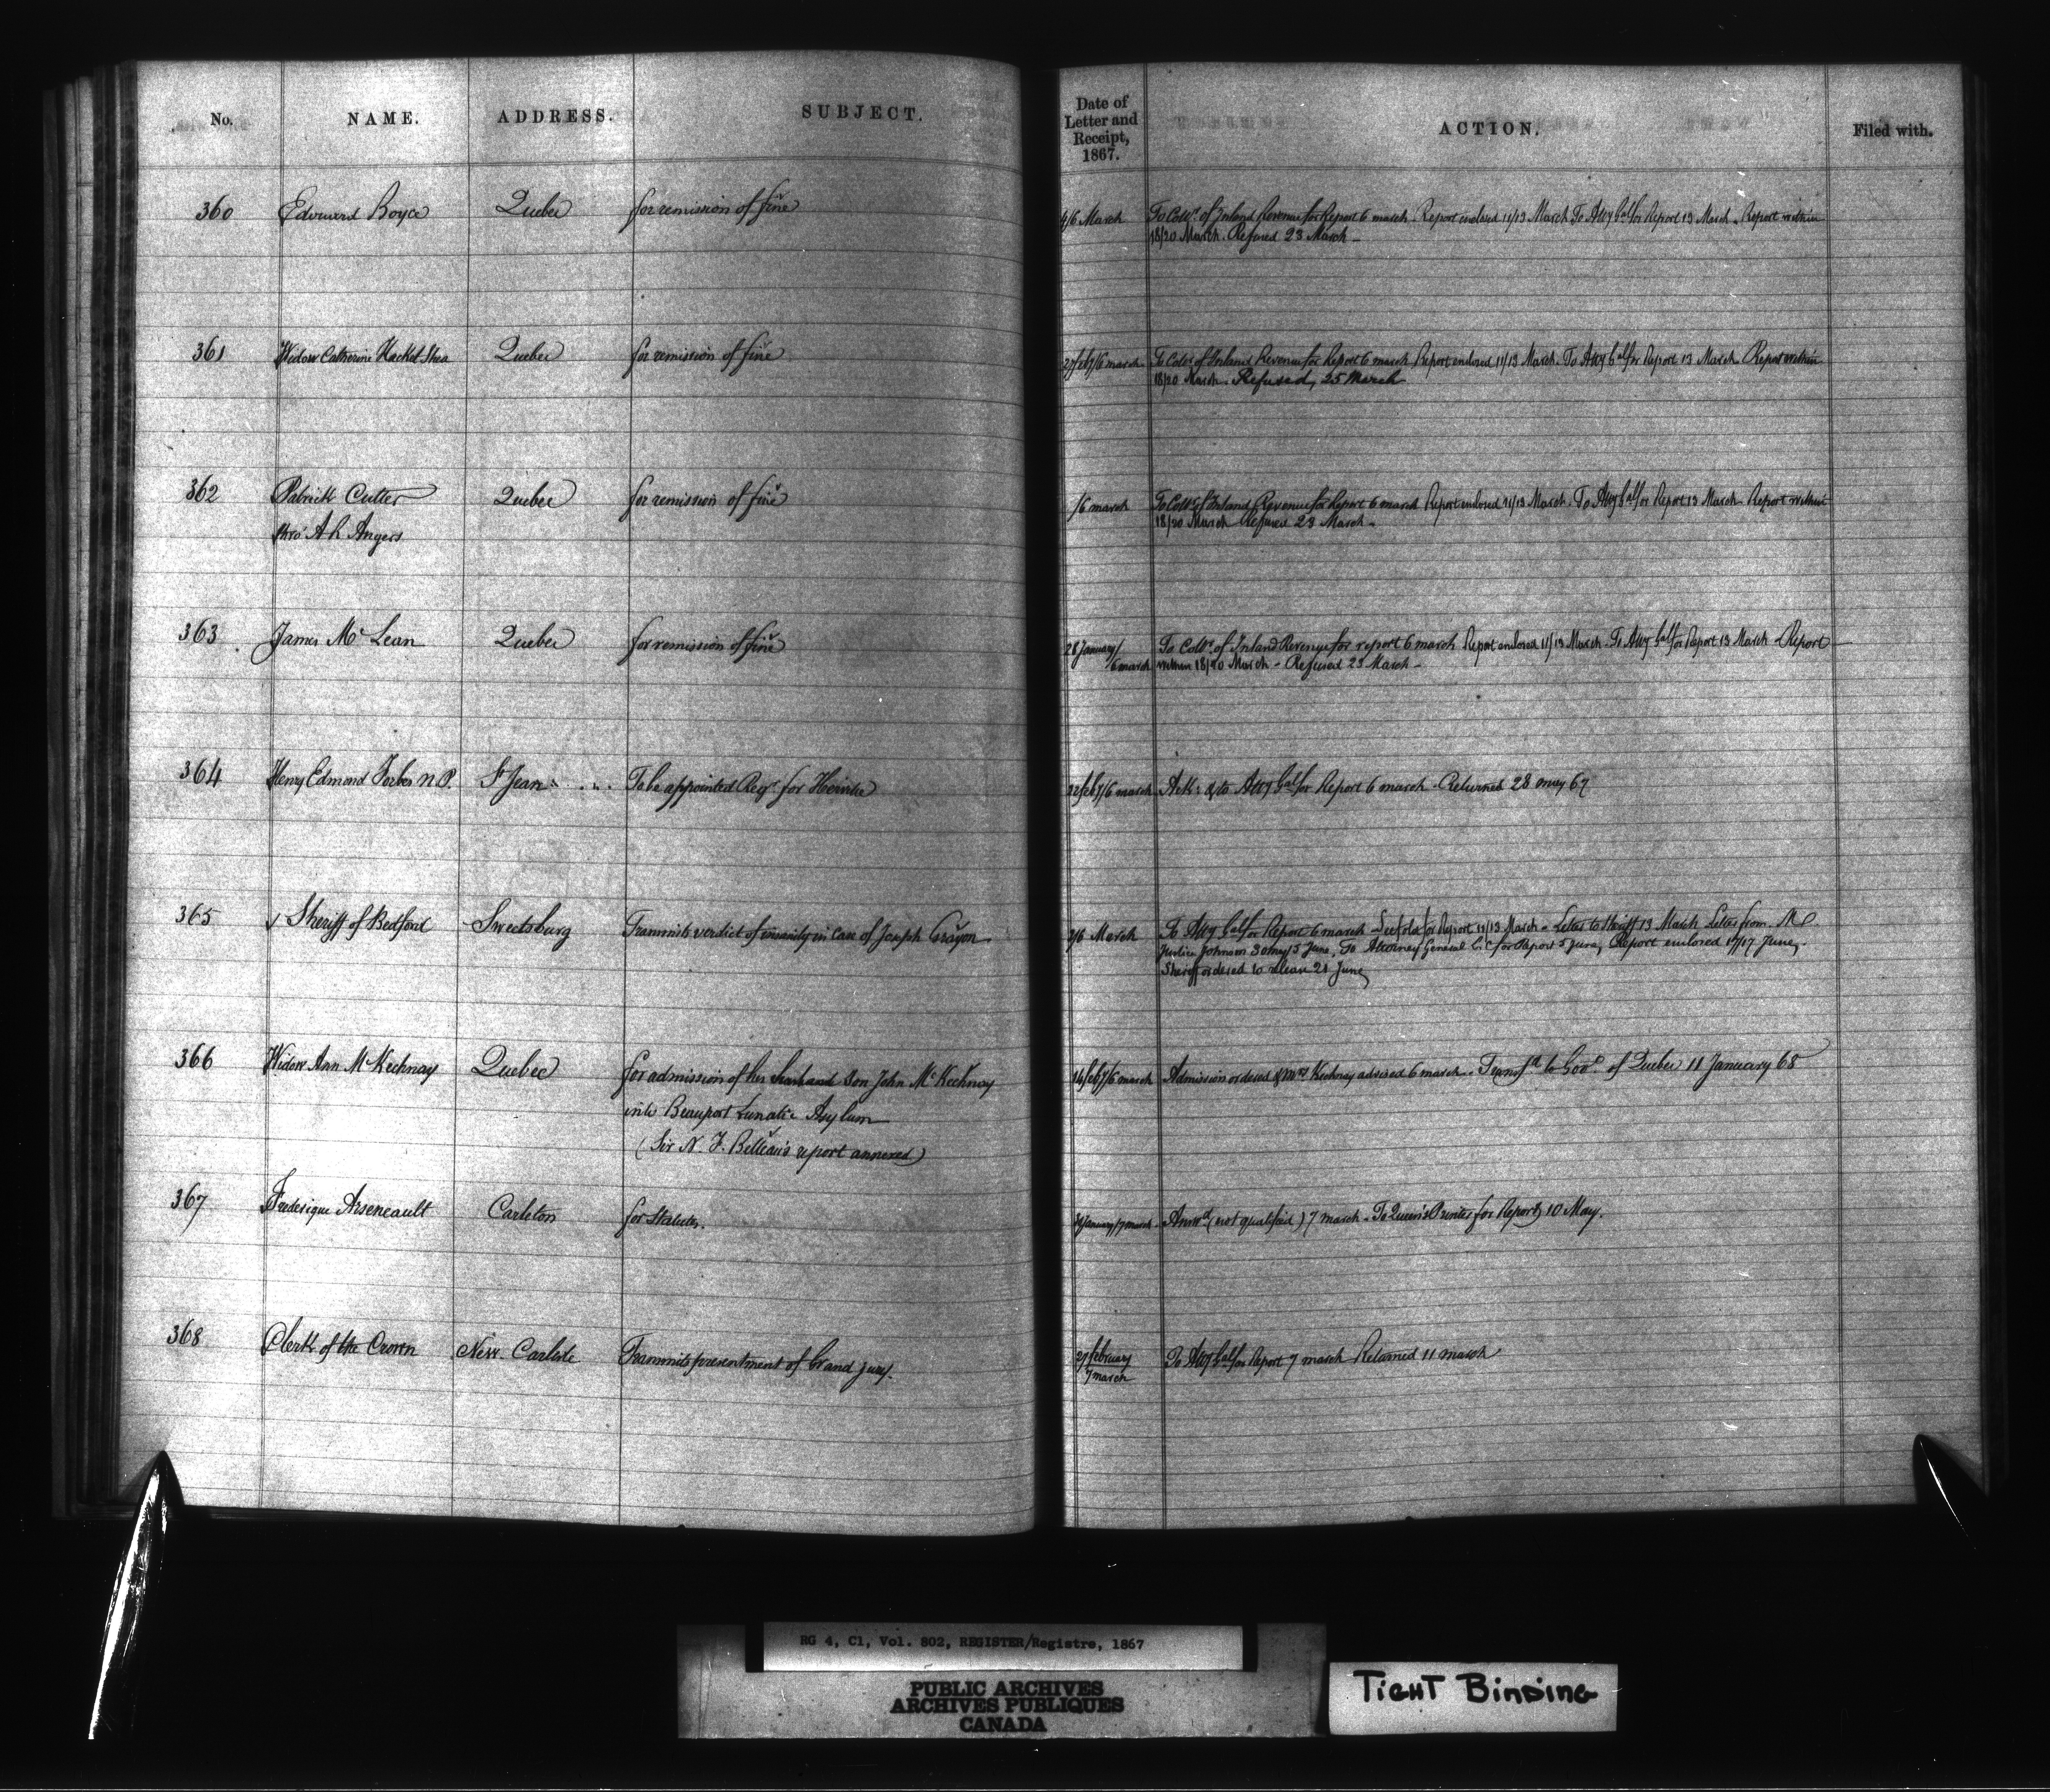 No. NAME. ADDRESS. SUBJECT. Date of Letter and Receipt, 1867. ACTION. Filed with.
360 Edouard Boyce Quebec for remission of fine 4/6 March To Collr. of Inland Revenue for Report 6 march Report enclosed 11/13 March To Atty Genl for Report 13 March. Report within
18/20 March. Refused 23 March -
361 Widow Catherine Hacket Shea Quebec for remission of fine 27 feby/6 march To Collr of Inland Revenue for Report 6 march Report enclosed 11/13 March. To Atty Genl for Report 13 March Report within
18/20 March. Refused, 25 March
362 Patrick Cutter Quebec for remission of fine /6 march To Collr of Inland Revenue for Report 6 march Report enclosed 11/13 March. To Atty Genl for Report 13 March Report within
thro' A R Angers 18/20 March Refused 23 March -
363 James Mc Lean Quebec for remission of fine 28 January/ 6 march To Collr. of Inland Revenue for report 6 march Report enclosed 11/13 March. To Atty Genl for Report 13 March - Report
within 18/20 March - Refused 23 March -
364 Henry Edmond Forbes N.P. St Jean To be appointed Regr. for 22 feby/6 march Ack: & to Atty Genl for Report 6 march - Returned 28 may 67
365 Sheriff of Bedford Sweetsburg Transmits verdict of insanity in case of Joseph 2/6 March To Atty Genl for Report 6 march for Report 11/13 March - Letter to Sheriff 13 March Letter from Mr
Justice Johnson 30 may/5 June, To Attorney General L.C for Report 5 June, Report enclosed 17 June.
Sheriff ordered to release 21 June
366 Widow Ann McKechnay Quebec for admission of her husband son John McKechnay 14 feby/6 march Admission ordered & Mrs Kechnay advised 6 march. Transfd to Govr of Quebec 11 January 68
into Beauport Lunatic Asylum
(Sir N. F. Belleau's report annexed)
367 Frederique Arseneault Carleton for Statutes. January/7 march Answd (not qualified) 7 march - To Queen's Printer for Report 10 May.
368 Clerk of the Crown New Carlisle Transmits presentment of Grand jury. 27 february 7 march To Atty Genl for Report 7 march Returned 11 march
RG 4, C1, Vol. 802, REGISTER/Registre, 1867
PUBLIC ARCHIVES
ARCHIVES PUBLIQUES
CANADA
TIGHT BINDING